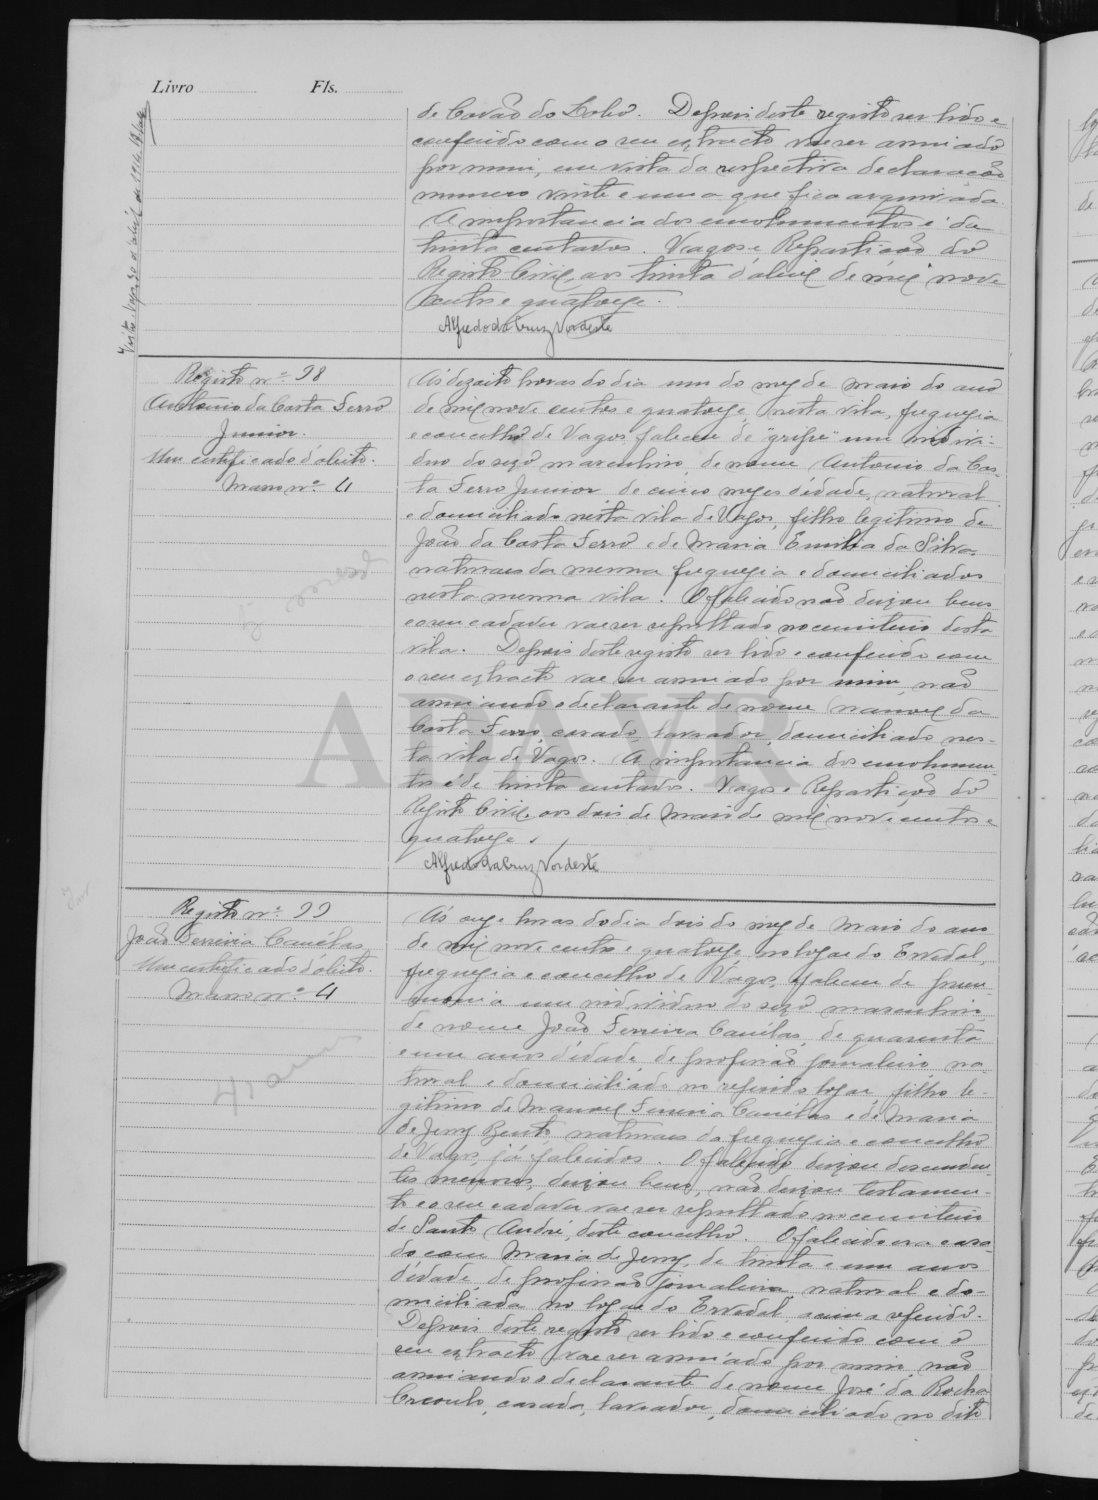 Livro Fls.
Visto. Vagos, 30 d'abril de 1914.
de Covão do Lobo. Depois deste registo ser lido e
conferido com o seu extracto vae ser assinado
por mim, em vista da respectiva declaração
numero vinte e uma que fica arquivada.
A importancia dos emolumentos é de
trinta centavos. Vagos e Repartição do
Registo Civil, aos trinta d'abril de mil nove
centos e quatorze.
Alfredo da Cruz Nordeste
Registo nº 98
Antonio da Costa Ferro
Junior.
Um certificado d'obito.
Masso nº 4
5 meses
Ás dezoito horas do dia um do mez de Maio do ano
de mil nove centos e quatorze, nesta vila, freguezia
e concelho de Vagos faleceu de "gripe" um indivi-
duo do sexo masculino, de nome Antonio da Cos-
ta Ferro Junior, de cinco mezes d'idade, natural
e domiciliado nesta vila de Vagos, filho legitimo de
João da Costa Ferro e de Maria Emilia da Silva,
naturaes da mesma freguezia e domiciliados
nesta mesma vila. O falecido não deixou bens
e o seu cadaver vae ser sepultado no cemiterio desta
vila. Depois deste registo ser lido e conferido com
o seu extracto vae ser assinado por mim, não
assinando o declarante de nome Manoel da
Costa Ferro, casado, lavrador, domiciliado nes-
ta vila de Vagos. A importancia dos emolumen-
tos é de trinta centavos. Vagos e Repartição do
Registo Civil, aos dois de Maio de mil nove centos e
quatorze.
Alfredo da Cruz Nordeste
ADAVR
Registo nº 99
João Ferreira Canélas
Um certificado d'obito.
Masso nº 4
41 anos
Ás onze horas do dia dois do mez de Maio do ano
de mil nove centos e quatorze, no logar do Ervedal,
freguezia e concelho de Vagos, faleceu de pneu-
monia um individuo do sexo masculino,
de nome João Ferreira Canélas, de quarenta
e um anos d'idade, de profissão jornaleiro, na-
tural e domiciliado no referido logar, filho le-
gitimo de Manoel Ferreira Canélas e de Maria
de Jesus Bento, naturaes da freguezia e concelho
de Vagos, já falecidos. O falecido deixou descenden-
tes menores, deixou bens, não deixou testamen-
to e o seu cadaver vae ser sepultado no cemiterio
de Santo André, deste concelho. O falecido era casa-
do com Maria de Jesus, de trinta e um anos
d'idade, de profissão jornaleira, natural e do-
miciliada no logar do Ervedal, acima referido.
Depois deste registo ser lido e conferido com o
seu extracto vae ser assinado por mim, não
assinando o declarante de nome José da Rocha
casado, lavrador, domiciliado no dito